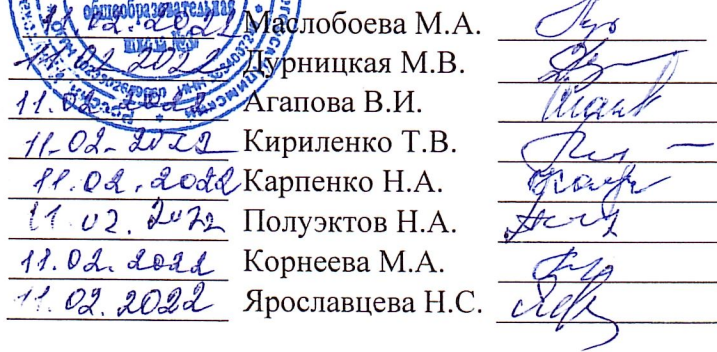 общеобразовательная
11.02.2022 Маслобоева М.А.
11.02.2022 Дурницкая М.В.
11.02.2022 Агапова В.И.
11.02.2022 Кириленко Т.В.
11.02.2022 Карпенко Н.А.
11.02.2022 Полуэктов Н.А.
11.02.2022 Корнеева М.А.
11.02.2022 Ярославцева Н.С.